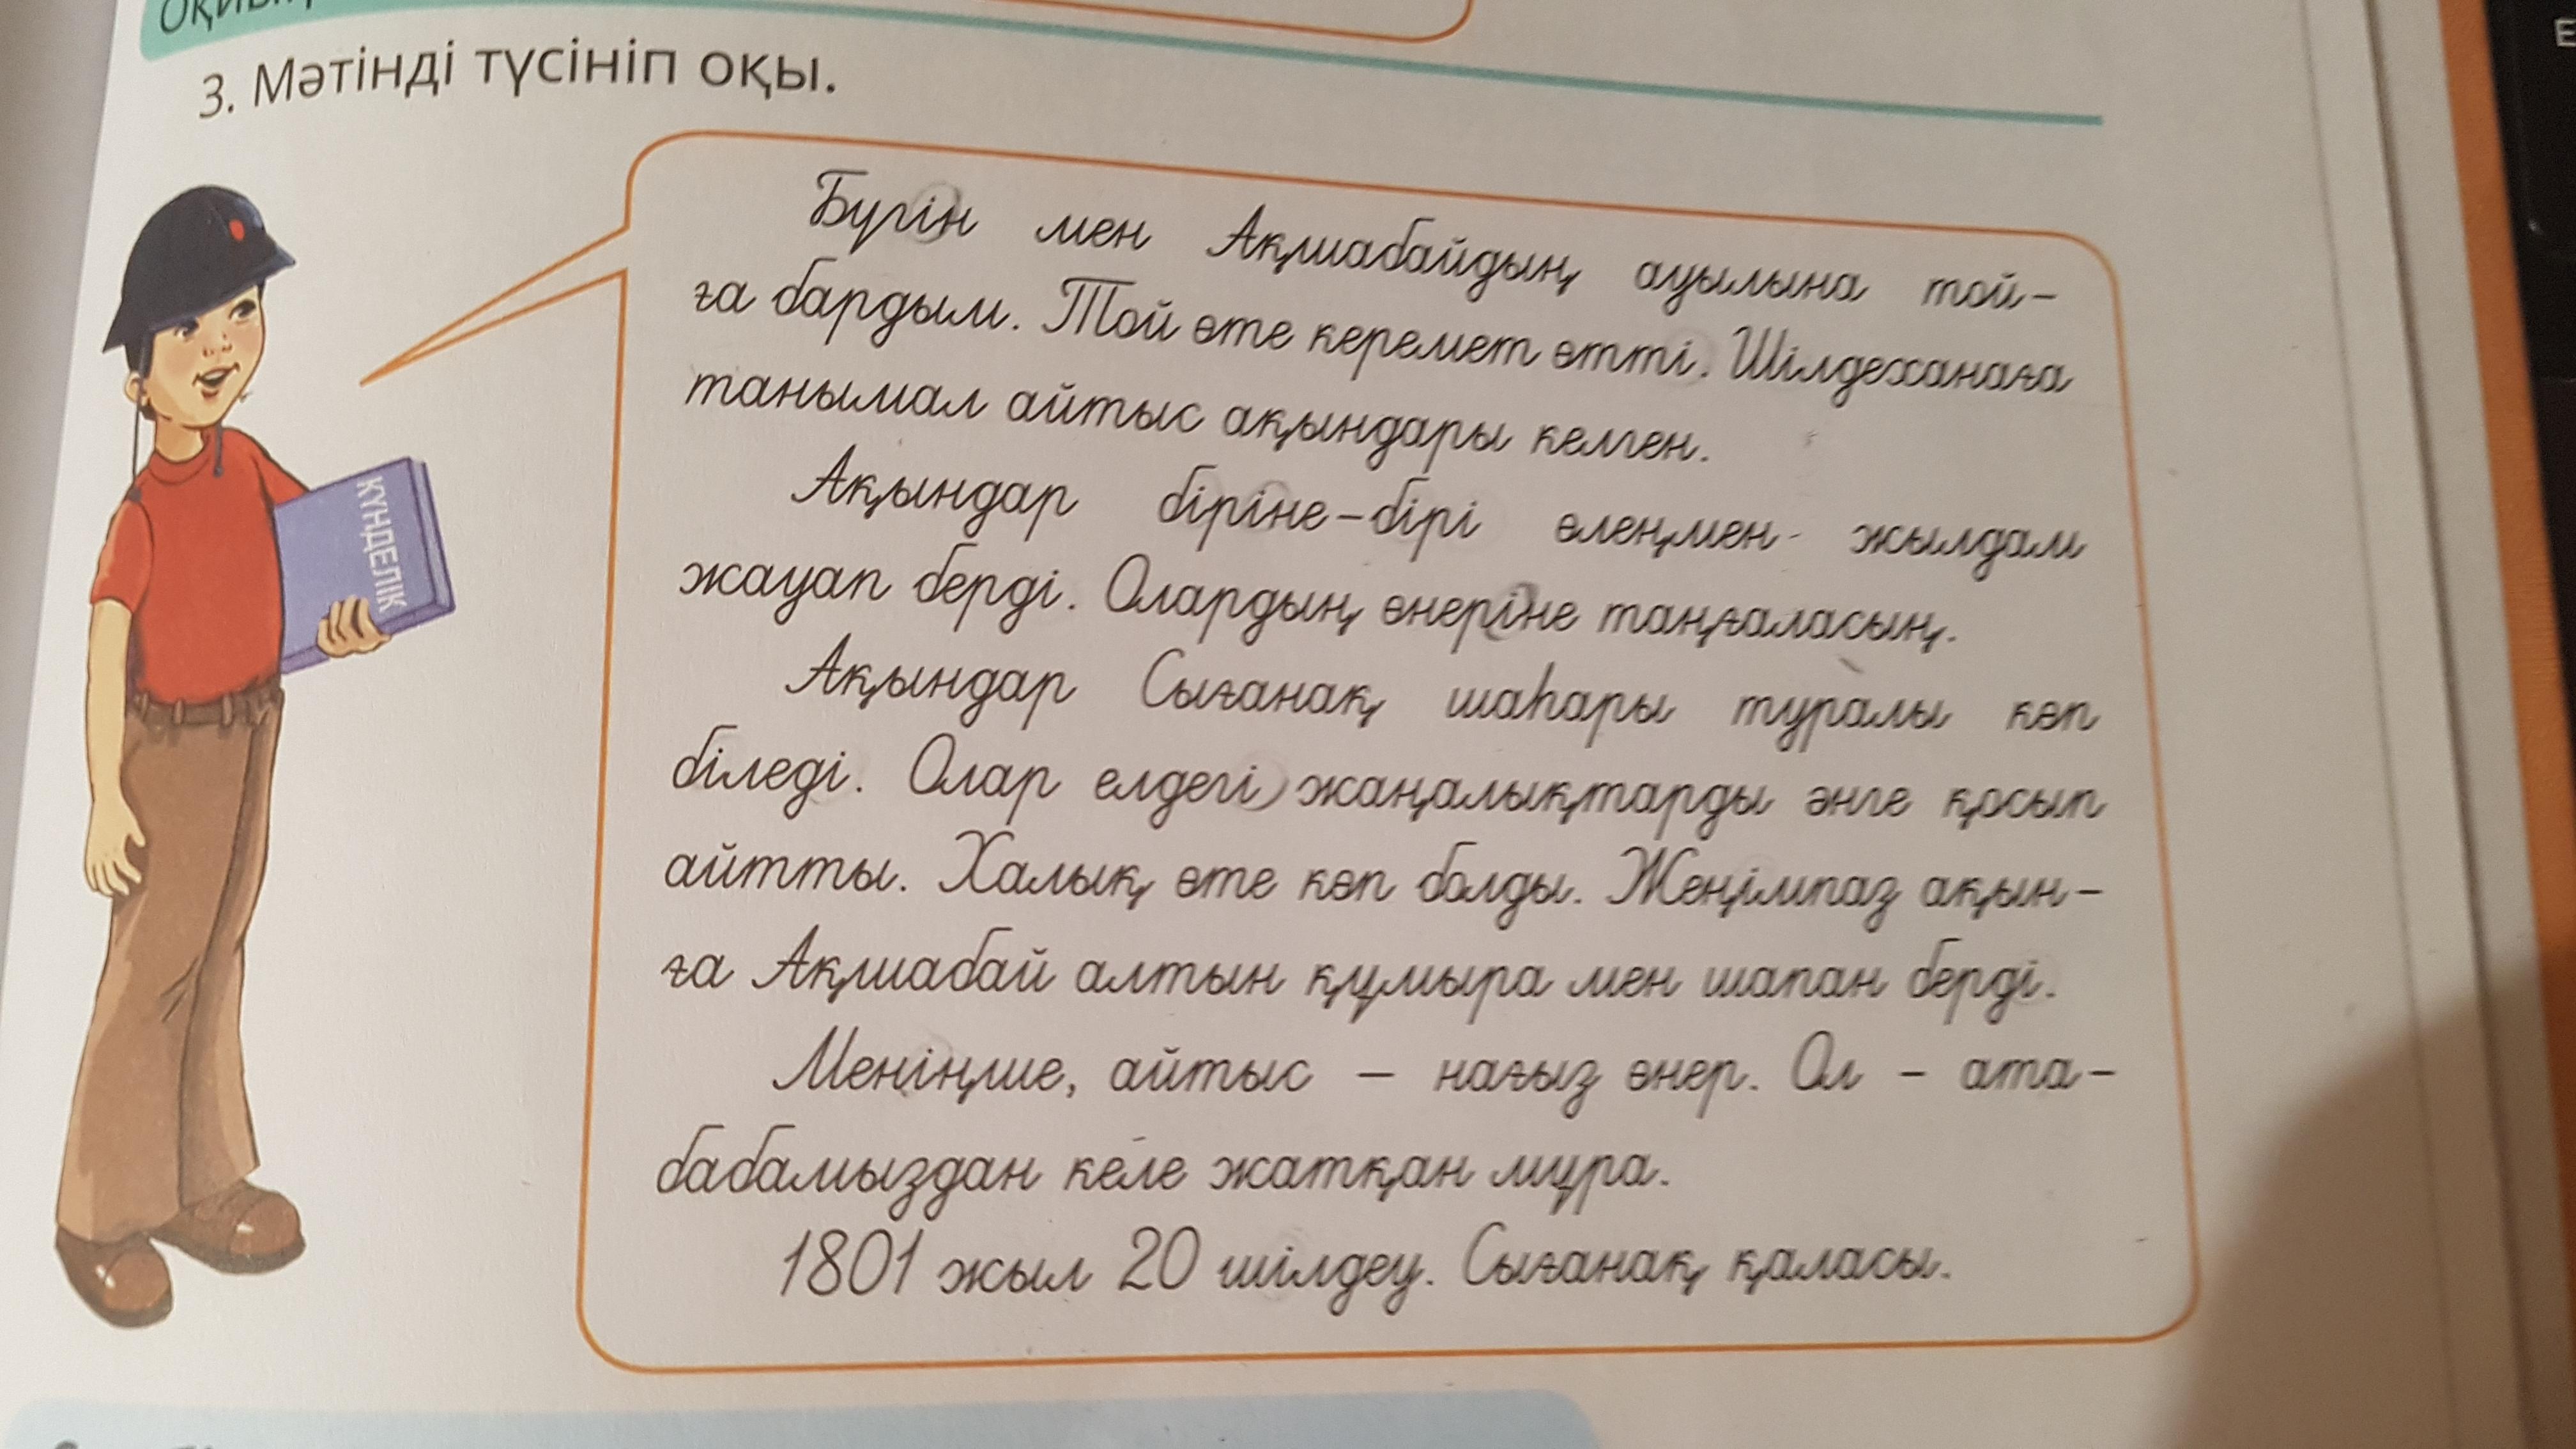 3. Мәтінді түсініп оқы.
Бүгін мен Ақшабайдың ауылына той-
ға бардым. Той өте керемет өтті. Шілдеханаға
танымал айтыс ақындары келген.
Ақындар біріне-бірі өлеңмен жылдам
жауап берді. Олардың өнеріне таңғаласың.
КҮНДЕЛІК
Ақындар Сығанақ шаһары туралы көп
біледі. Олар елдегі жаңалықтарды әнге қосып
айтты. Халық өте көп болды. Жеңімпаз ақын-
ға Ақшабай алтын құмыра мен шапан берді.
Меніңше, айтыс – нағыз өнер. Ол – ата-
бабамыздан келе жатқан мұра.
1801 жыл 20 шілдеу. Сығанақ қаласы.